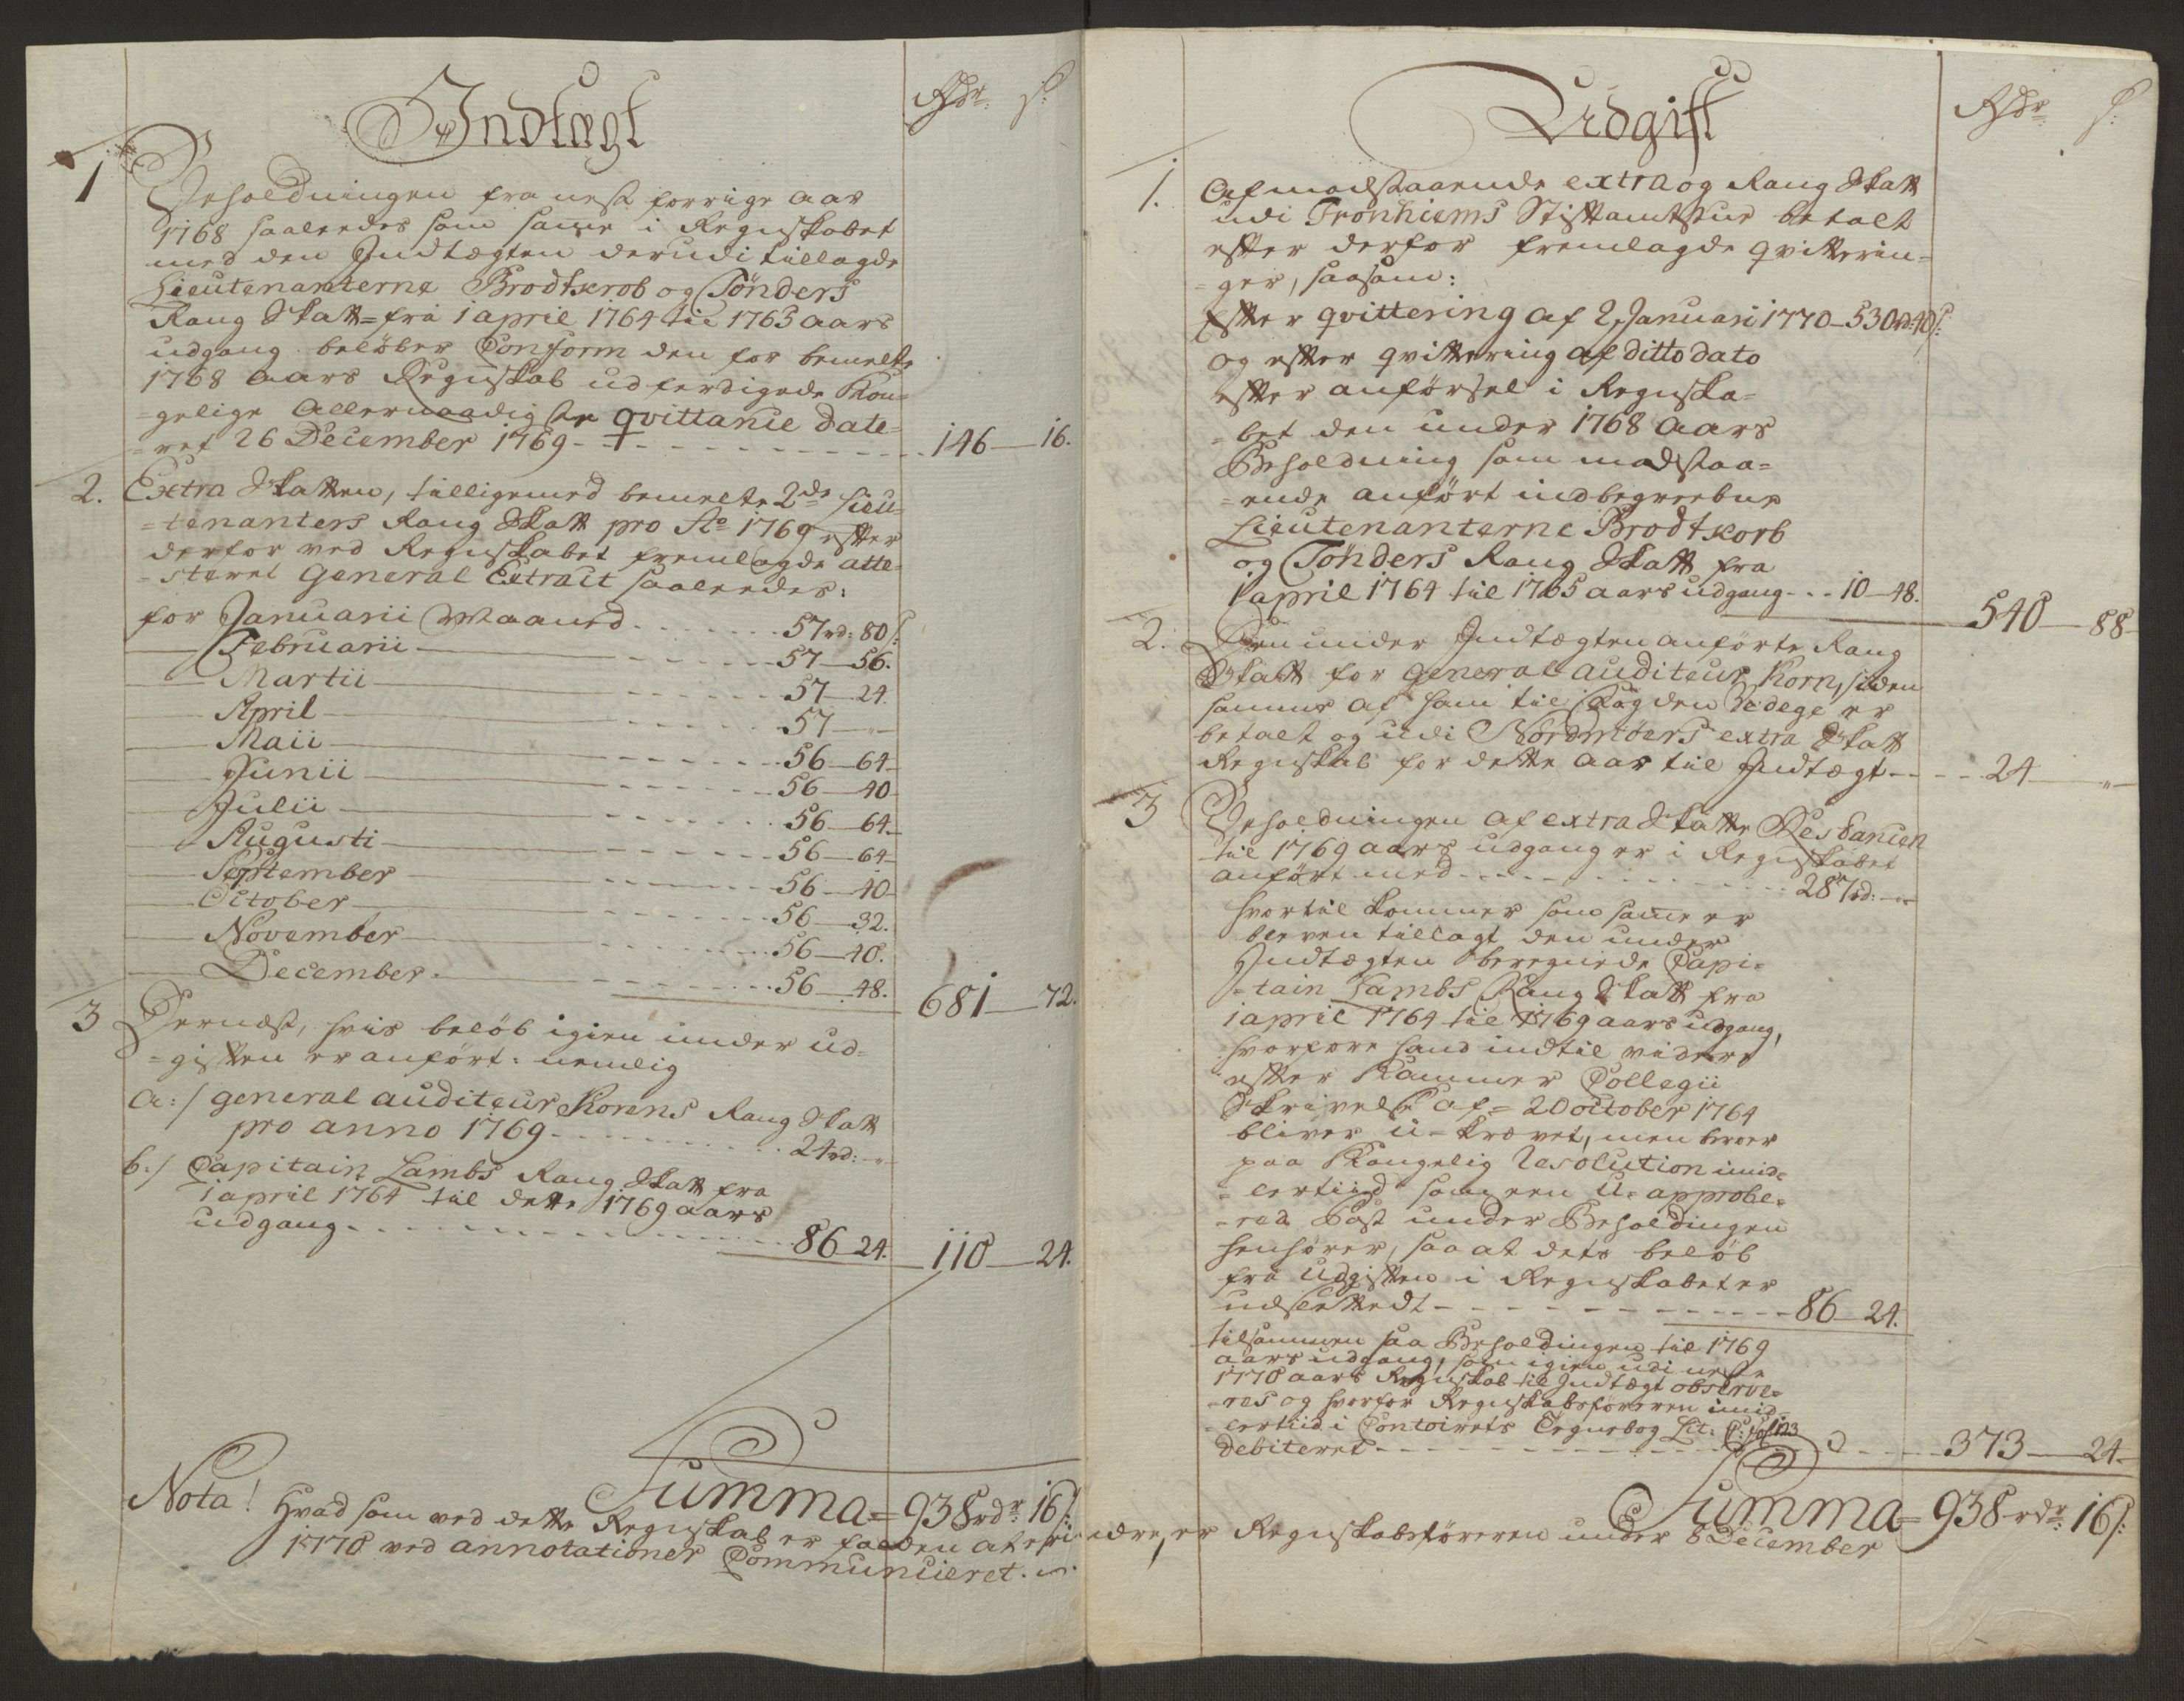 Indtægt
Rdr: s:
1 Beholdningen fra nest forrige aar
1768 saaleedes som same i Regnskabet
med den Indtægten derudi tillagde
Lieutenanterne Brodtkrob og Tönders
Rang Skatt= fra 1 april 1764 til 1765 aars
udgang beløber Conform den for bemelte
1768 aars Regnskab udferdigede Kon=
=gelige Allernaadigste qvittanie date=
=ret 26 December 1769 - - 146 — 16.
2. Extra Skatten, tilligemed bemelte 2de Lieu=
=tenanters Rang Skatt pro Ao 1769 efter
derfor ved Regnskabet fremlagde atte=
=steret General Extract saaleedes:
for Januarii Maaned - - - 57 rd: 80 s:
— Februarii — - - - 57 — 56.
— Martii — - - - 57 — 24.
— April — - - - 57 — "
— Maii — - - - 56 — 64
— Junii — - - - 56 — 40
— Julii — - - - 56 — 64
— Augusti — - - - 56 — 64
— September — - - - 56 — 40
— October — - - - 56 — 32.
— November — - - - 56 — 40.
— December — - - - 56 — 48. 681 — 72.
3 Dernæst, hvis beløb igien under ud=
=giften er anført: nemlig
a:/ general auditeur Korens Rang Skatt
pro anno 1769 - - - 24 rd: "
b:/ Capitain Lambs Rang Skatt fra
1 april 1764 til dette 1769 aars
udgang - - - 86 24. 110 — 24.
Summa = 938 rdr: 16 s:
Udgift
Rdr: s:
1. Af modstaaende extra og Rang Skatt
udi Tronhiems Stiftamtstue betalt
efter derfor fremlagde qvitterin=
=ger, saasom:
Efter qvittering af 2 Januarii 1770 - 530 rd 40 s:
og efter qvittering af ditto dato
efter anførsel i Regnska=
=bet den under 1768 aars
Beholdning som modstaa=
=ende anført indbegreebne
Lieutenanterne Brodtkorb
og Tönders Rang Skatt fra
1 april 1764 til 1765 aars udgang - - 10 — 48. 540 — 88
2. Den under Indtægten anførte Rang
Skatt for general auditeur Korn, siden
samme af ham til Fogden
betalt og udi Nordmöers extra Skatt
Regnskab for dette aar til Indtægt - - - 24 — "
3 Beholdningen af extra Skatte Restancen
til 1769 aars udgang er i Regnskabet
anført med - - - 287 rd: "
hvortil kommer som same er
bleven tillagt den under
Indtægten beregnede Capi=
=tain Lambs Rang Skatt fra
1 april 1764 til 1769 aars udgang,
hvorfore hand indtil videre
efter Kammer Collegii
Skrivelse af = 20 october 1764
bliver u-krævet, men beroer
paa Kongelig Resolution imid=
=lertiid som een u= approbe=
=red Post under Beholdingen
henhører, saa at dets beløb
fra udgiften i Regnskabet er
udslettedt - - - 86 — 24.
tilsammen saa Beholdingen til 1769
aars udgang, som igien udi neste
1770 aars Regnskab til Indtægt observe=
=res og hvorfor Regnskabsføreren imid=
=lertiid i Contoirets Tegnebog Lit: C: fol 123
debiteret - - - 373 — 24
Summa = 938 rdr: 16 s:
Nota! Hvad som ved dette Regnskab er falden at erindre, er Regnskabsføreren under 8 December
1770 ved annotationer Communiceret.